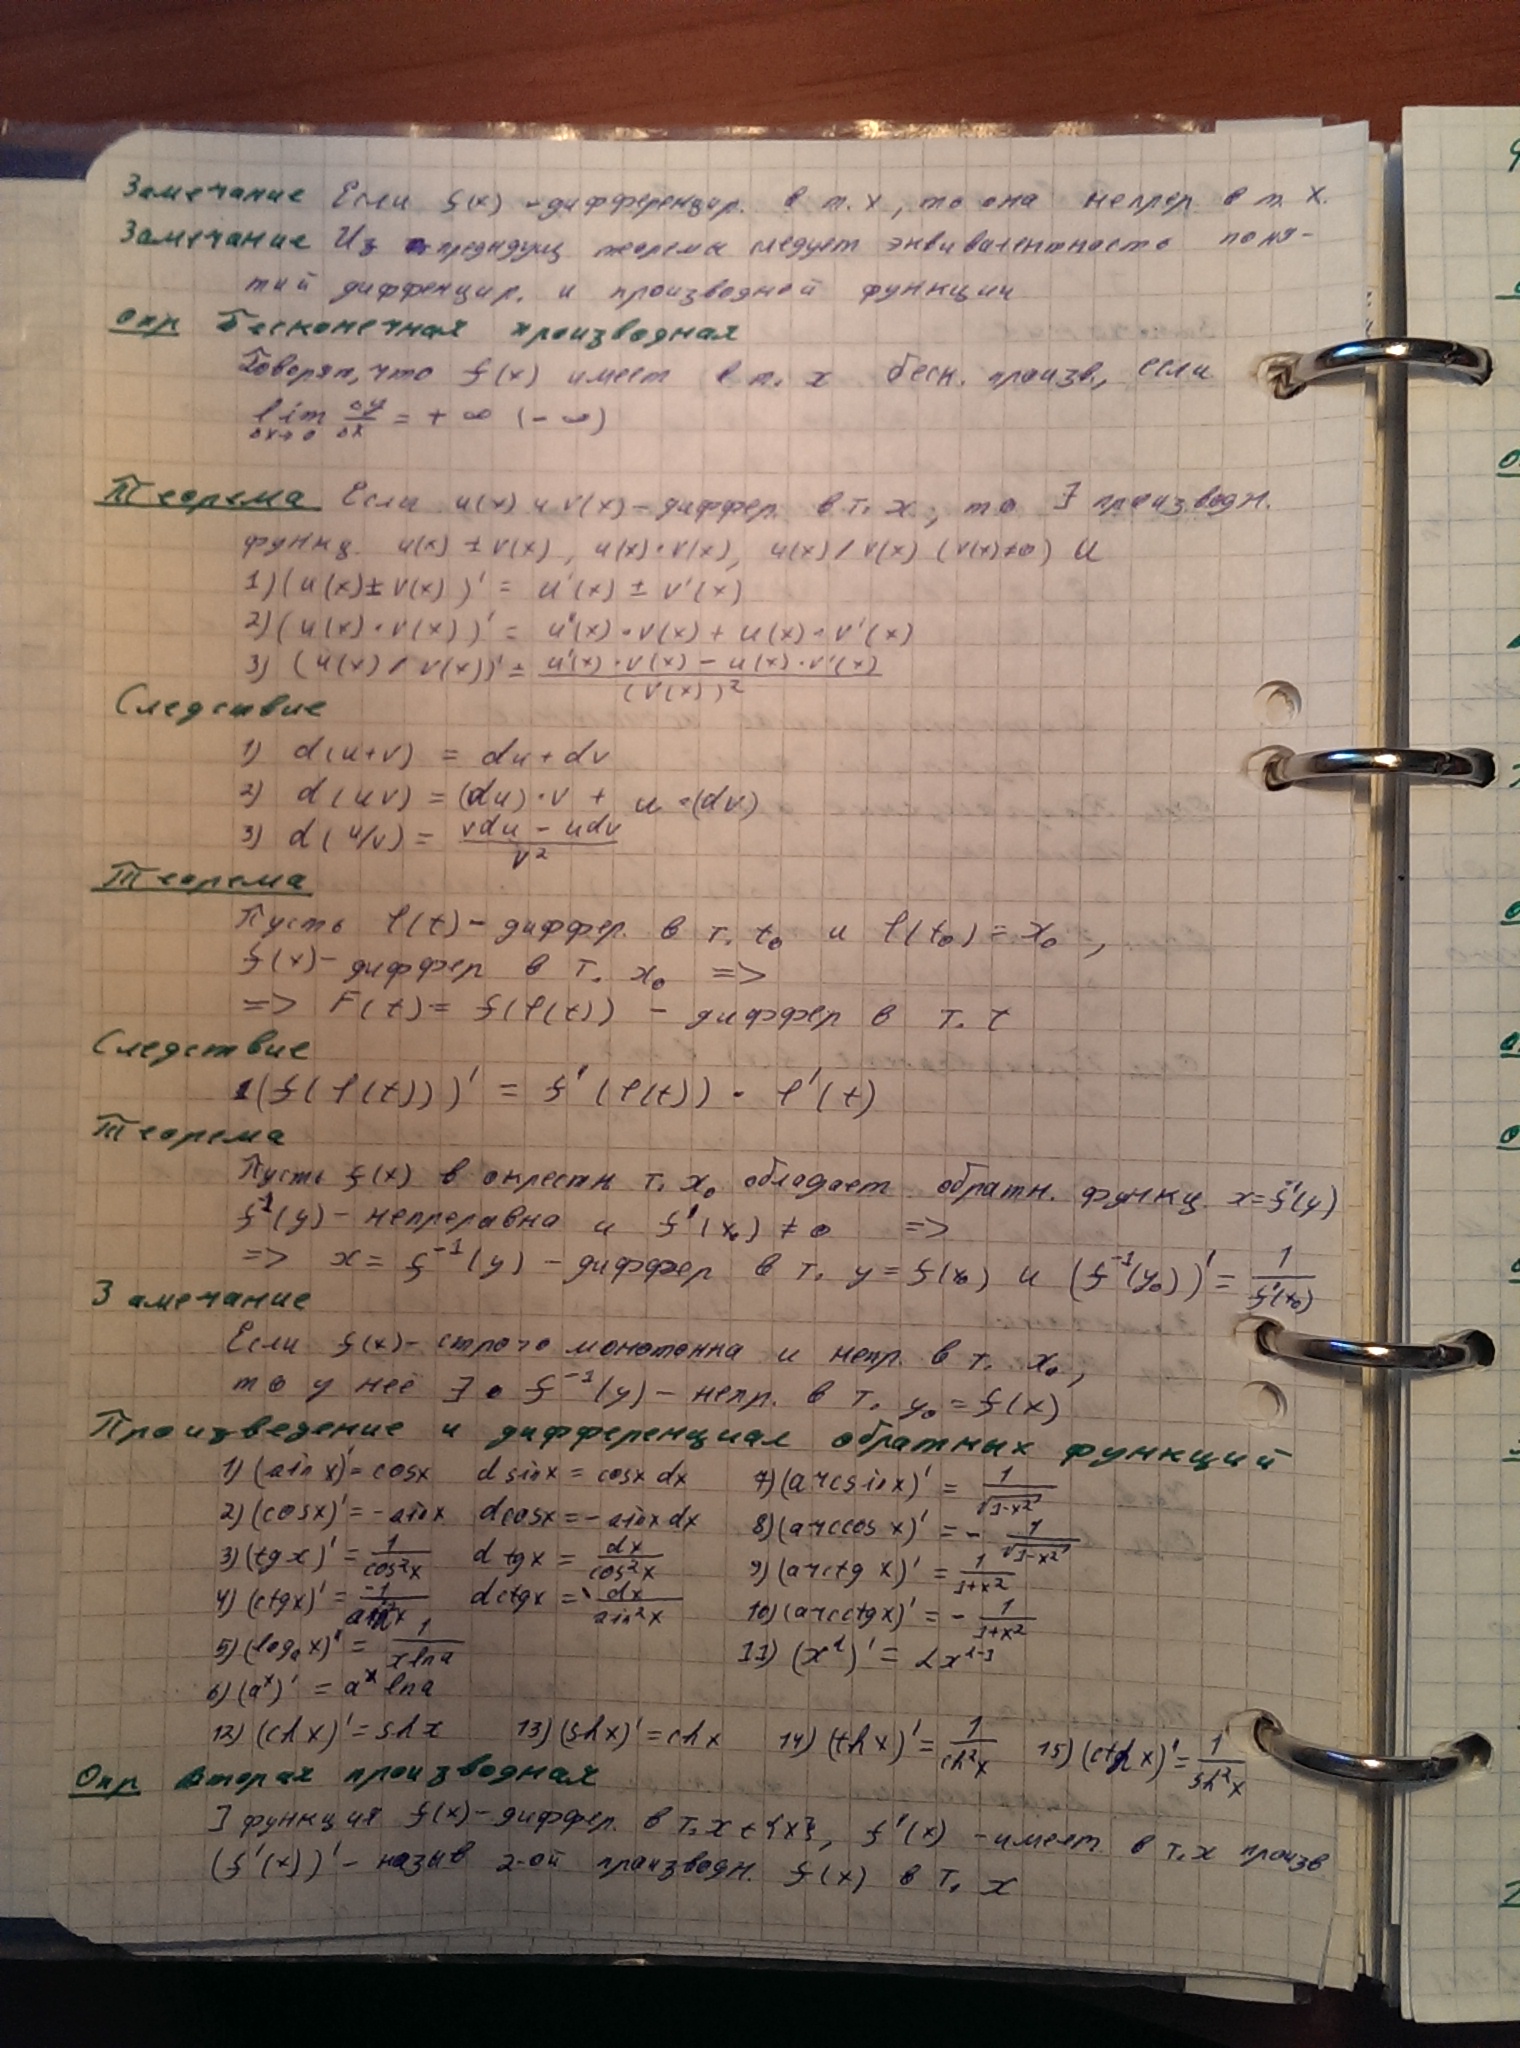 Замечание Если f(x) - дифференцир. в т. x, то она непрер. в т. x.
Замечание Из предыдущ теоремы следует эквивалентность поня-
тий диффенцир. и производной функции
Опр Бесконечная производная
Говорят, что f(x) имеет в т. x беск. произв., если
lim Δx→0 Δy/Δx = + ∞ (- ∞)
Теорема Если u(x) и v(x) - диффер. в т. x, то ∃ производн.
функц. u(x) ± v(x), u(x)·v(x), u(x)/v(x) (v(x)≠0) и
1) (u(x) ± v(x))' = u'(x) ± v'(x)
2) (u(x)·v(x))' = u'(x)·v(x) + u(x)·v'(x)
3) (u(x)/v(x))' = (u'(x)·v(x) - u(x)·v'(x))/(v(x))²
Следствие
1) d(u+v) = du + dv
2) d(uv) = (du)·v + u·(dv)
3) d(u/v) = (vdu - udv)/v²
Теорема
Пусть φ(t) - диффер. в т. t₀ и φ(t₀) = x₀,
f(x) - диффер в т. x₀ =>
=> F(t) = f(φ(t)) - диффер в т. t
Следствие
(f(φ(t)))' = f'(φ(t)) · φ'(t)
Теорема
Пусть f(x) в окрестн т. x₀ обладает обратн. функц. x = f⁻¹(y)
f⁻¹(y) - непрерывна и f'(x₀) ≠ 0 =>
=> x = f⁻¹(y) - диффер в т. y = f(x₀) и (f⁻¹(y₀))' = 1/f'(x₀)
Замечание
Если f(x) - строго монотонна и непр. в т. x₀,
то у неё ∃ f⁻¹(y) - непр. в т. y₀ = f(x)
Произведение и дифференциал обратных функций
1) (sin x)' = cosx d sinx = cosx dx 7) (arcsin x)' = 1/√(1-x²)
2) (cosx)' = -sinx dcosx = -sinx dx 8) (arccos x)' = - 1/√(1-x²)
3) (tgx)' = 1/cos²x d tgx = dx/cos²x 9) (arctg x)' = 1/(1+x²)
4) (ctgx)' = -1/sin²x dctgx = - dx/sin²x 10) (arcctgx)' = - 1/(1+x²)
5) (logₐx)' = 1/(x lna) 11) (x^α)' = αx^(α-1)
6) (aˣ)' = aˣ lna
12) (ch x)' = sh x 13) (sh x)' = ch x 14) (th x)' = 1/ch²x 15) (cth x)' = 1/sh²x
Опр Вторая производная
∃ функция f(x) - диффер. в т. x ∈ {x}, f'(x) - имеет в т. x произв
(f'(x))' - назыв 2-ой производн. f(x) в т. x